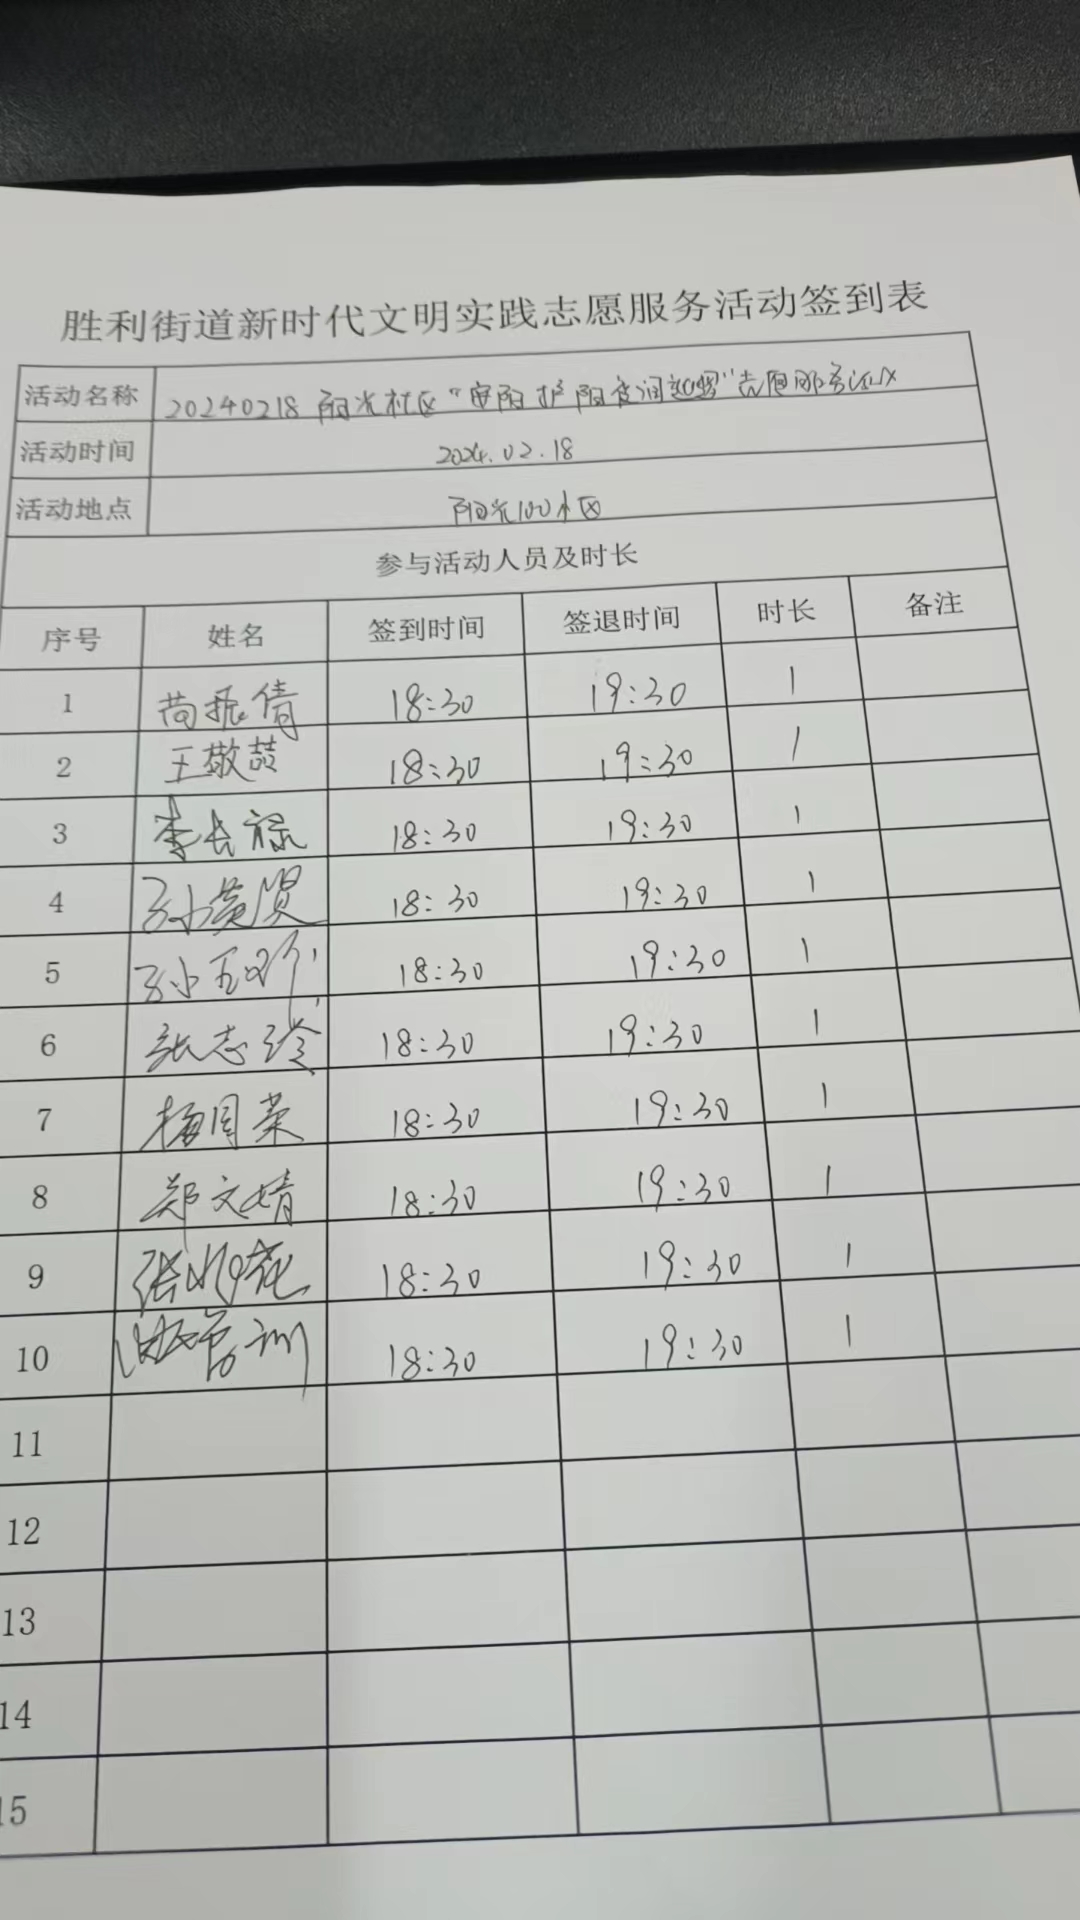 胜利街道新时代文明实践志愿服务活动签到表
活动名称 20240218 阳光社区“ ”志愿服务活动
活动时间 2024.02.18
活动地点 阳光100小区
参与活动人员及时长
序号 姓名 签到时间 签退时间 时长 备注
1 尚振倩 18:30 19:30 1
2 王敬喆 18:30 19:30 1
3 李长禄 18:30 19:30 1
4 孙英贤 18:30 19:30 1
5 孙玉 18:30 19:30 1
6 张志玲 18:30 19:30 1
7 杨月荣 18:30 19:30 1
8 郑文婧 18:30 19:30 1
9 张 花 18:30 19:30 1
10 18:30 19:30 1
11
12
13
14
15